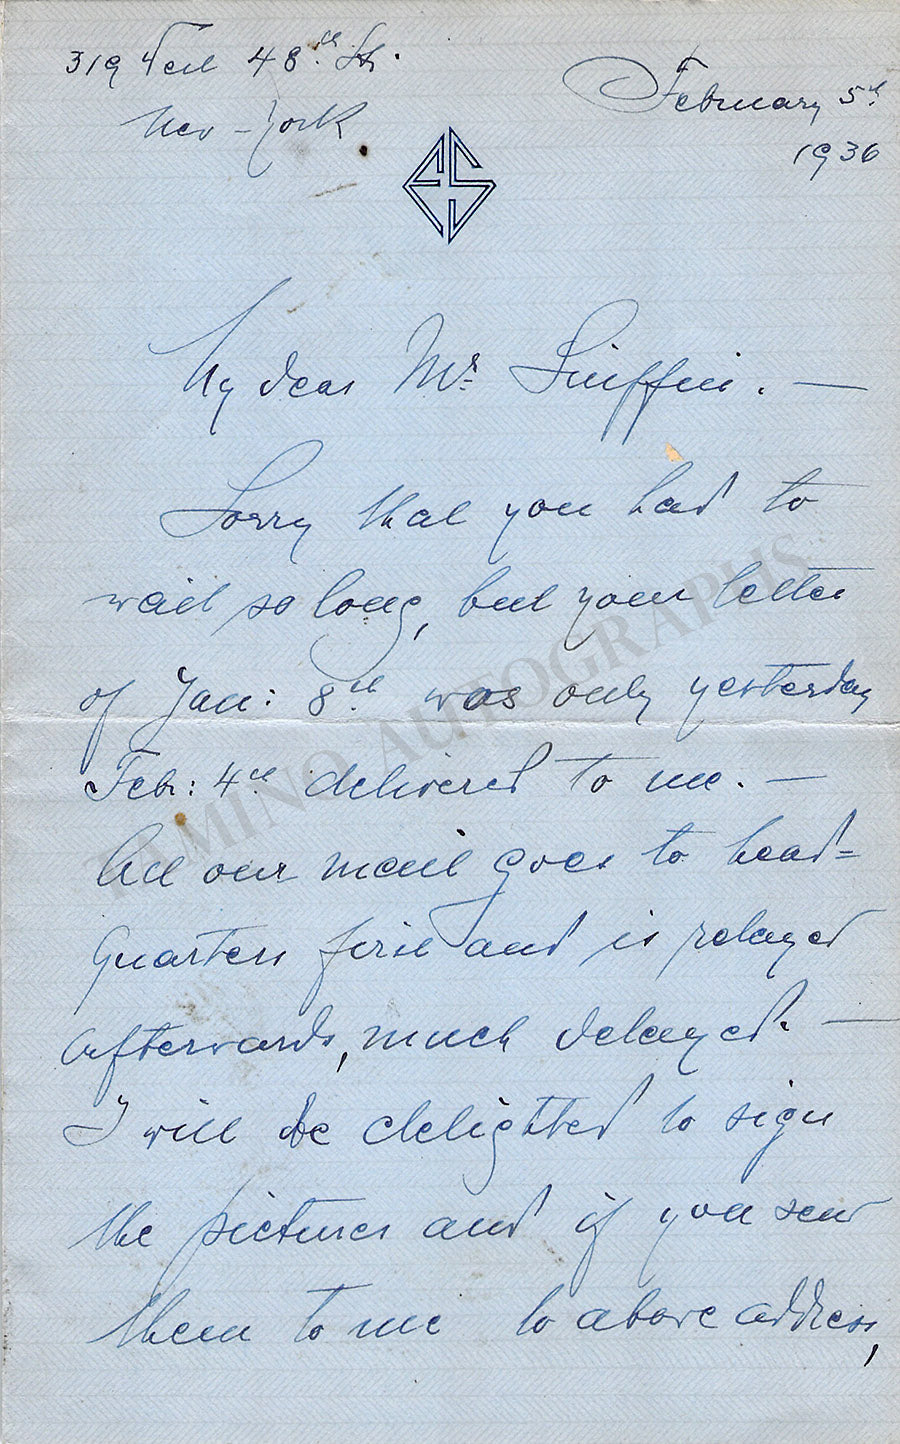 319 West 48th St.
New-York
February 5th
1936
My dear Mr. Sniffin. —
Sorry that you had to
wait so long, but your letter
of Jan: 8th was only yesterday
Feb: 4th delivered to me. —
All our mail goes to head=
quarters first and is relayed
afterwards, much delayed. —
I will be delighted to sign
the pictures and if you send
them to me to above address,
TAMINO AUTOGRAPHS